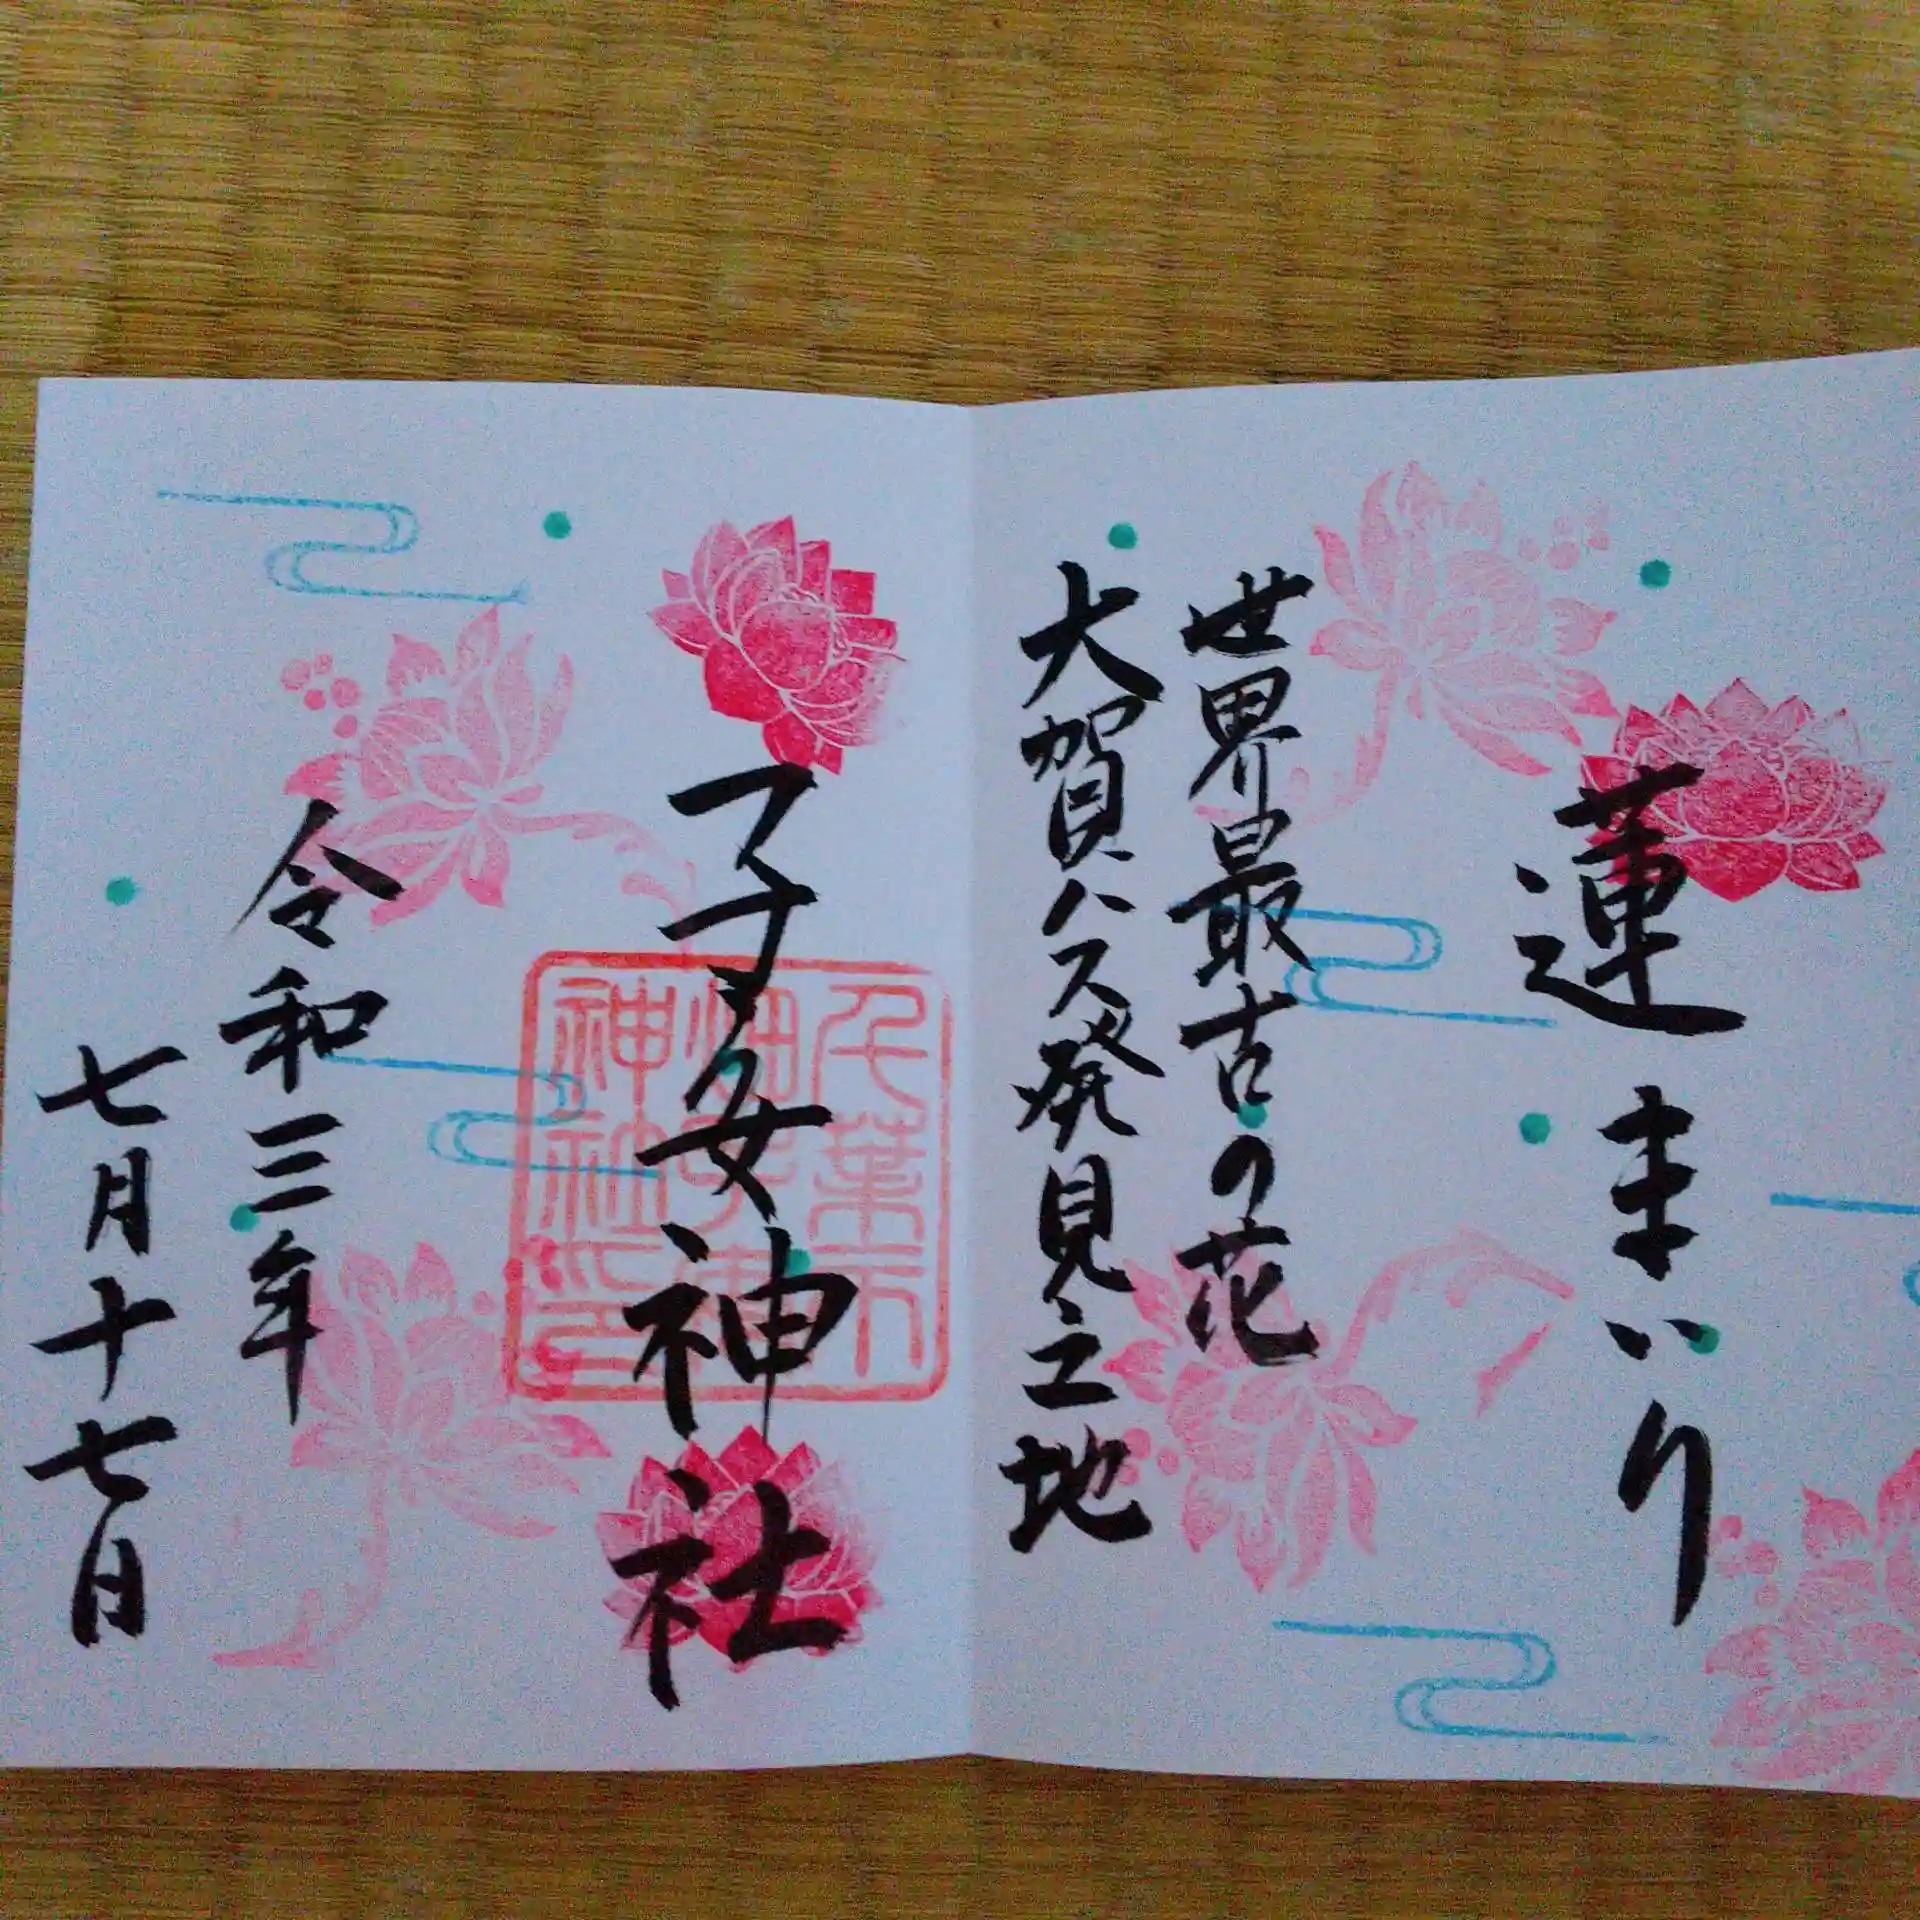 蓮まいり
世界最古の花
大賀ハス発見之地
子安神社
千葉市
畑子安
神社印
令和三年
七月十七日